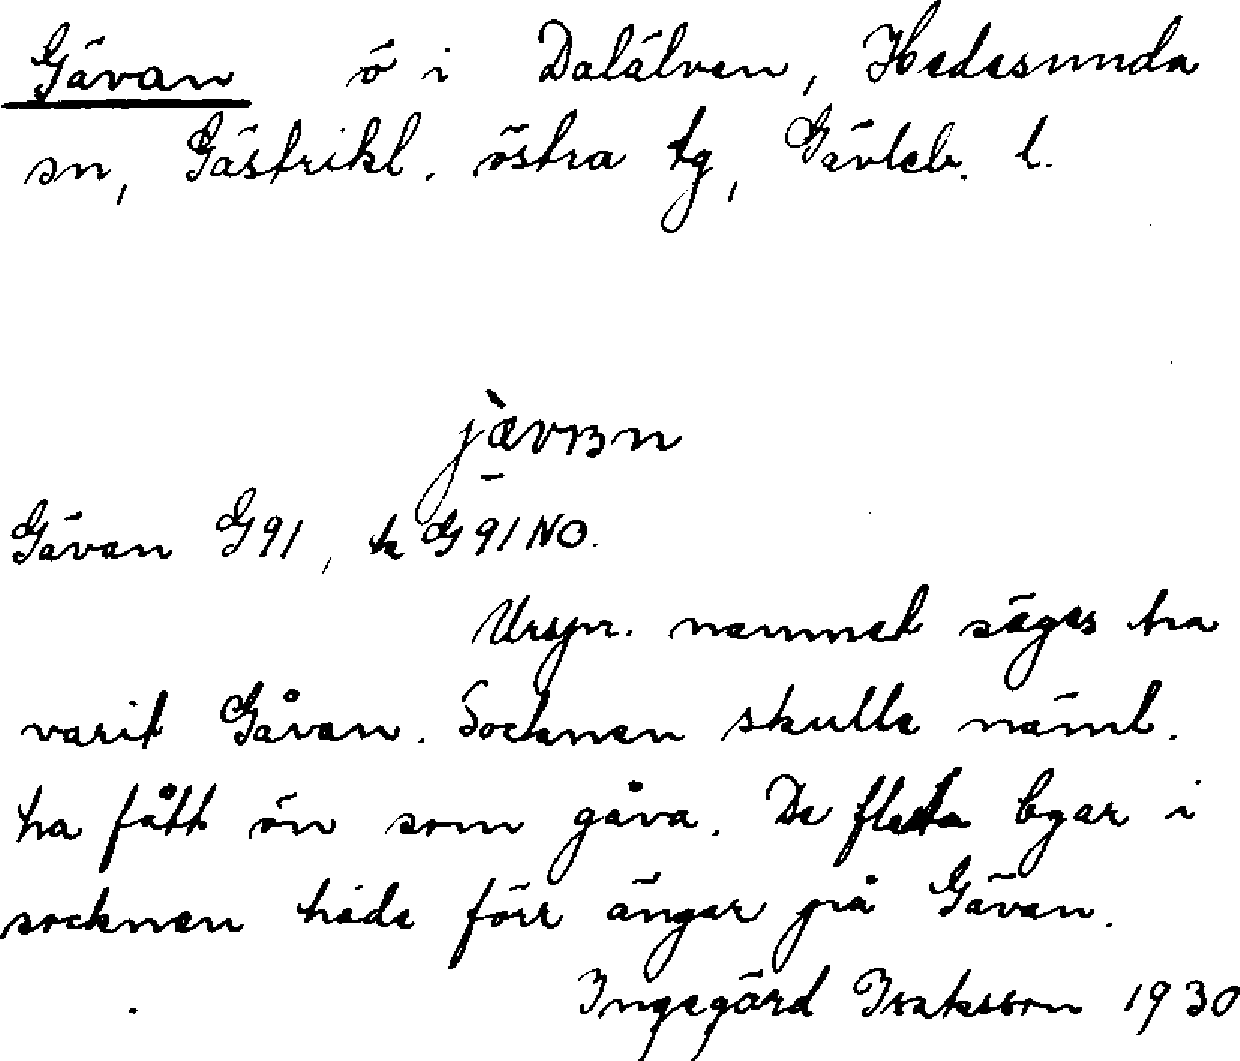 Gävan ö i Dalälven, Hedesunda
sn, Gästrikl. östra tg, Gävleb. l.
Gävan G91, k G91NO.
Urspr. namnet säges ha
varit Gåvan. Socknen skulle näml.
ha fått ön som gåva. De flesta byar i
socknen hade förr ängar på Gävan.
Ingegärd Isaksson 1930